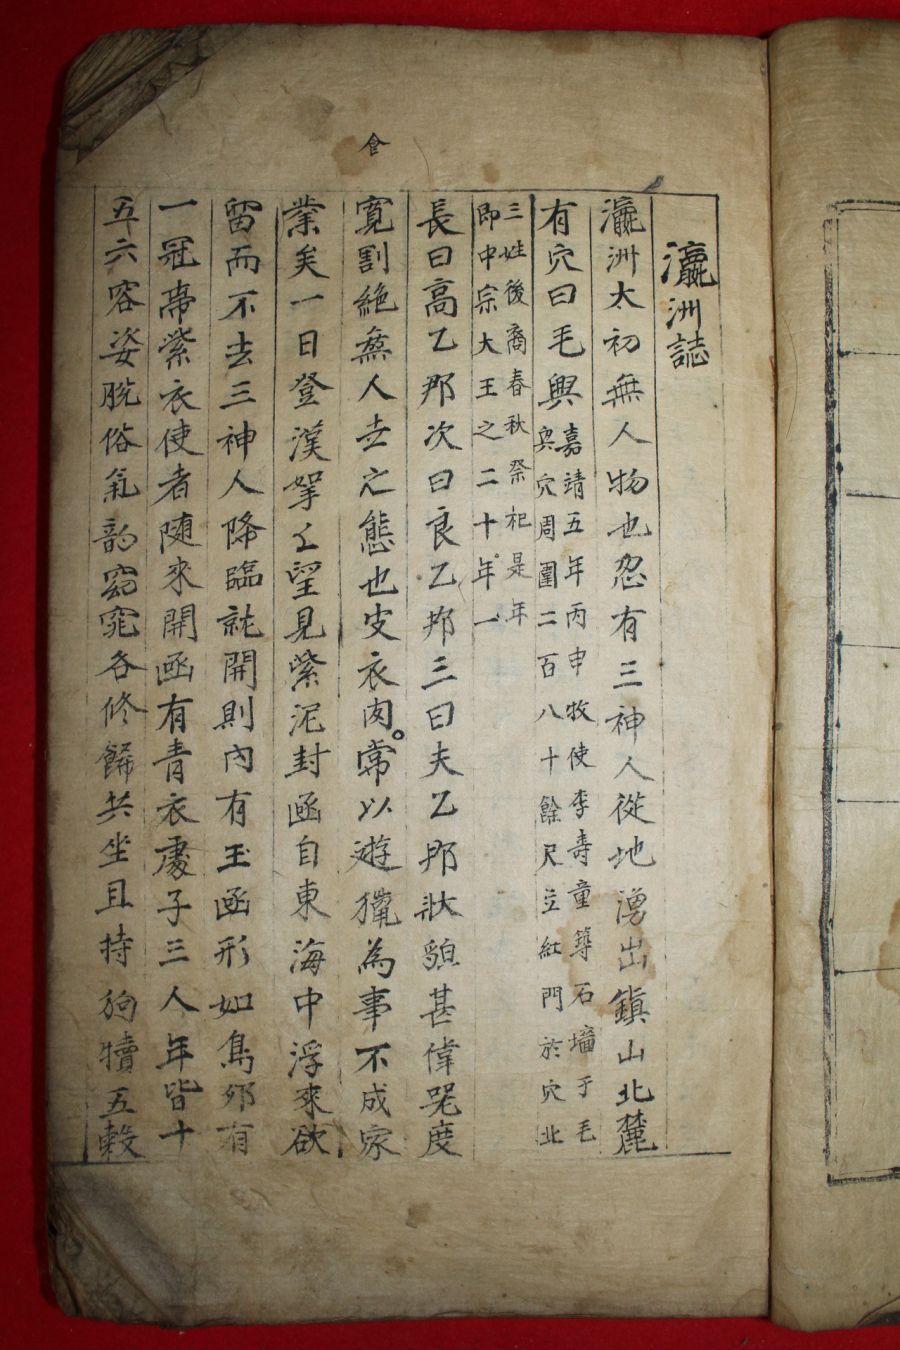 瀛洲誌
瀛洲太初無人物也忽有三神人從地湧出鎮山北麓
有穴曰毛興
嘉靖五年丙申牧使李壽童築石墻于毛
興穴周圍二百八十餘尺立紅門於穴北
三姓後裔春秋祭祀是年
即中宗大王之二十年一
長曰高乙那次曰良乙那三曰夫乙那狀貌甚偉器度
寬割絶無人世之態也皮衣肉常以遊獵為事不成家
食
業矣一日登漢拏上望見紫泥封函自東海中浮來欲
留而不去三神人降臨就開則內有玉函形如鳥卵有
一冠帶紫衣使者随來開函有青衣處子三人年皆十
五六容姿脱俗氣韵窈窕各修餙共坐且持駒犢五穀